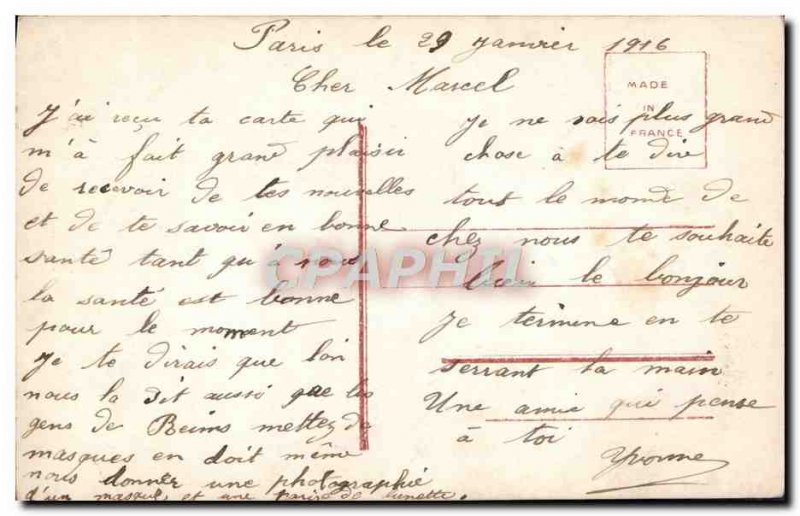 Paris le 29 janvier 1916
Cher Marcel
J'ai reçu ta carte qui
m'à fait grand plaisir
de recevoir de tes nouvelles
et de te savoir en bonne
santé tant qu'à nous
la santé est bonne
pour le moment
je te dirais que lon
nous la dit aussi que les
gens de Reims mettez de
masques en doit même
nous donner une photographie
d'un masque et une paire de lunette.
MADE
IN
FRANCE
je ne vois plus grand
chose à te dire
tout le monde de
chez nous te souhaite
bien le bonjour
Je termine en te
serrant la main
Une amie qui pense
à toi
Yvonne
CPAPHIL